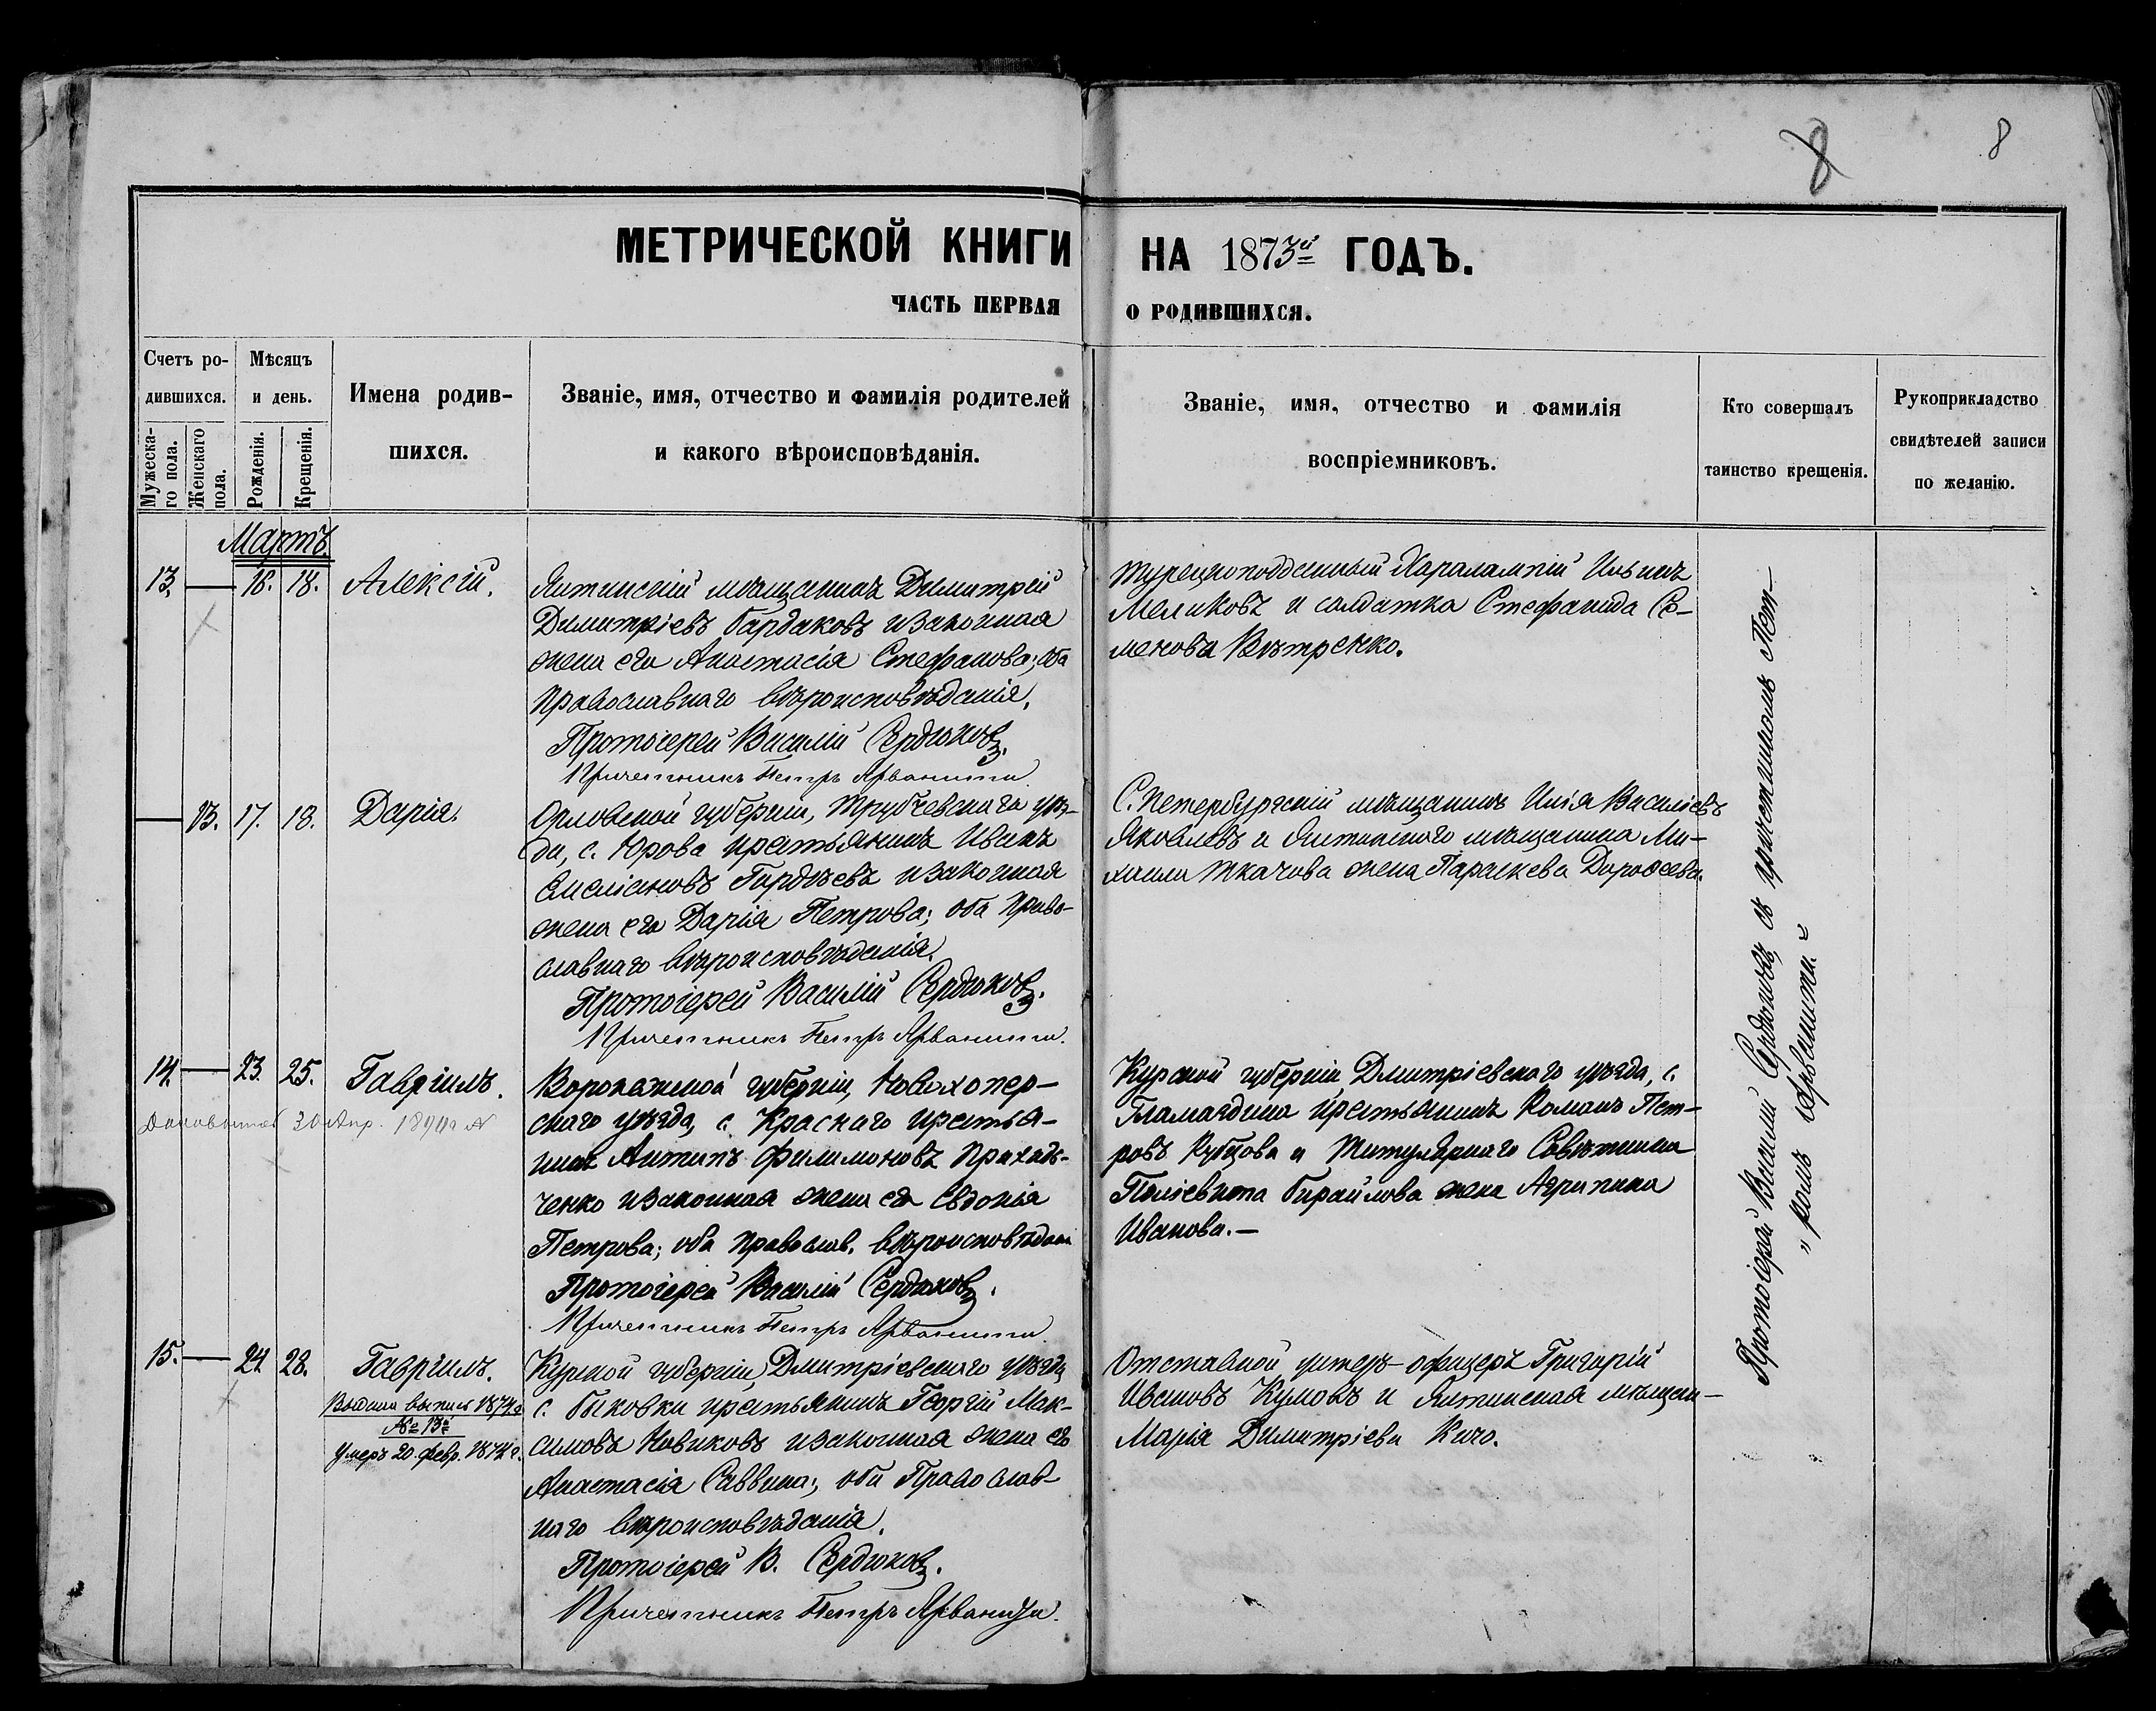 8
8
МЕТРИЧЕСКОЙ КНИГИ НА 1873й ГОДЪ.
ЧАСТЬ ПЕРВАЯ О РОДИВШИХСЯ.
Счетъ ро-
дившихся.
Мужеска-
го пола.
Женскаго
пола.
Мѣсяцъ
и день.
Рожденія.
Крещенія.
Имена родив-
шихся.
Званіе, имя, отчество и фамилія родителей
и какого вѣроисповѣданія.
Званіе, имя, отчество и фамилія
воспріемниковъ.
Кто совершалъ
таинство крещенія.
Рукоприкладство
свидѣтелей записи
по желанію.
Мартъ
13. — 16. 18. Алексій.
Ялтинскій мѣщанинъ Димитрій
Димитріевъ Бардаковъ и законная
жена его Анастасія Стефанова; оба
православнаго вѣроисповѣданія.
Протоіерей Василій Сердюковъ.
Причетникъ Петръ Арванити
Турецкоподданный Харалампій Ильинъ
Меликовъ и солдатка Стефанида Се-
менова Вѣтренко.
— 13. 17. 18. Дарія.
Орловской губерніи, Трубчевскаго уѣз-
да, с. Юрова крестьянинъ Иванъ
Емеліановъ Гордѣевъ и законная
жена его Дарія Петрова; оба право-
славнаго вѣроисповѣданія.
Протоіерей Василій Сердюковъ.
Причетникъ Петръ Арванити.
С. Петербургскій мѣщанинъ Илія Василіевъ
Яковлевъ и Ялтинскаго мѣщанина Ми-
хаила Ткачова жена Параскева Дороѳеева.
14. — 23. 25. Гавріилъ.
30 Апр.
Воронежской губерніи, Новохопер-
скаго уѣзда, с. Краснаго крестья-
нинъ Антипъ Филимоновъ
ченко и законная жена его Евдокія
Петрова; оба православ. вѣроисповѣдан
Протоіерей Василій Сердюковъ.
Причетникъ Петръ Арванити
Курской губерніи Дмитріевскаго уѣзда, с.
крестьянинъ Романъ Пет-
ровъ Кубцова и Титулярнаго Совѣтника
Поліевкта Гирайлова жена Агрипина
Иванова. —
15. — 24. 28. Гавріилъ.
Выдана выпись 1874 г.
№ 13й
Умеръ 20. февр. 1874 г.
Курской губерніи, Дмитріевскаго уѣзда
с. Быковки крестьянинъ Георгій Мак-
симовъ Новиковъ и законная жена его
Анастасія Саввина; оба Православ-
наго вѣроисповѣданія.
Протоіерей В. Сердюковъ.
Причетникъ Петръ Арванити.
Отставной унтеръ-офицеръ Григорій
Ивановъ Кумовъ и Ялтинская мѣщан-
Марія Димитріева Кичо.
Протоіерей Василій Сердюковъ, съ причетникомъ Пет-
„ромъ Арванити.“